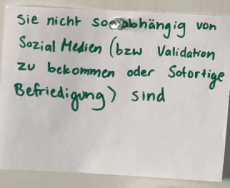 Sie nicht so abhängig von
Sozial Medien (bzw Validation
zu bekommen oder Sofortige
Befriedigung) sind